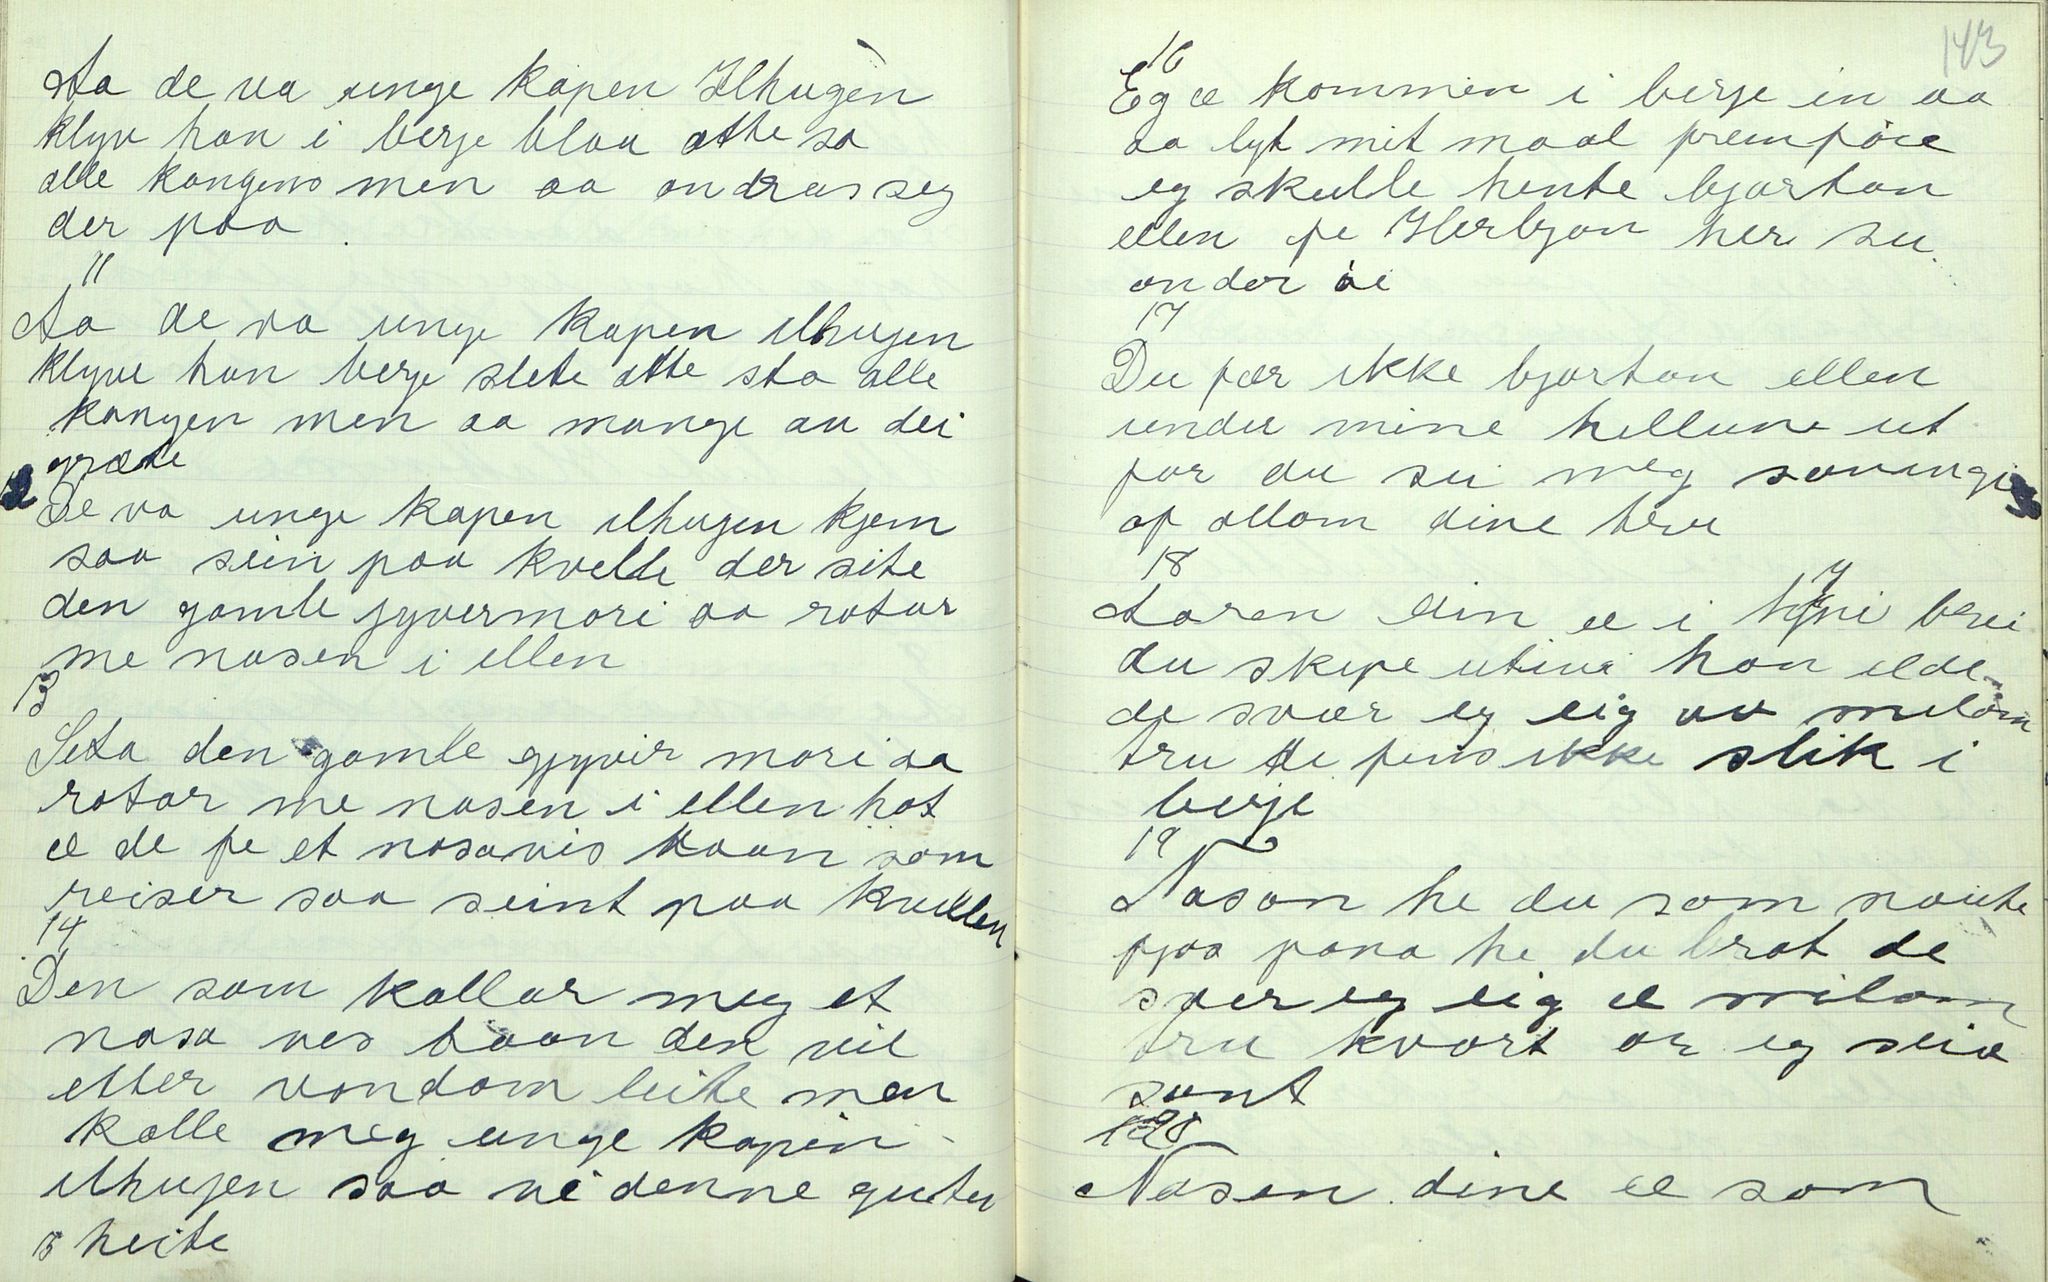 Aa de va unge kapen Ilhugen
klyv han i berje blaa atte sa
alle kongens men aa ondras seg
der paa
11
Aa de va unge kapen ilhugen
klyve han berje slete atte sta alle
kongen men aa mange au dei
græte
12
De va unge kapen ilhugen kjem
saa sein paa kvelde der site
den gamle gyvermori aa rotar
me nasen i ellen
13
Seta den gamle gjyvir mori aa
rotar me nasen i ellen hot
æ de fe et nasavis baan som
reiser saa seint paa kvellen
14
Den som kallar meg et
nasa ves baan den vil
etter vondom leite men
kalle meg unge kapin
ilhugen saa vi denne guten
15 heite
143
16
Eg æ kommen i berje in aa
aa lyt mit maal fremføre
eg skulle hente bjartan
ellen fe Herbjon her su
ondar øi
17
Du fær ikke bjartan ellen
under mine hellune ut
for du sei meg sanninge
af allom dine tru
18
Laren din æ i hyni brei
du skipe utivi han elde
de svær eg eig aa milom
tru de fins ikke slik i
berje
19
Nason he du som naute
fjos pana he du brat de
svær eg eig æ milom
tru kvart or eg seia
sant
20
Nasen dine æ som